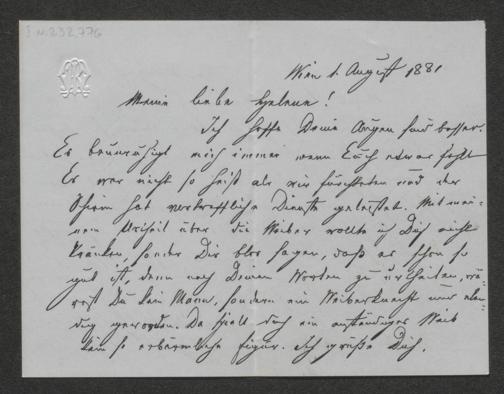 I.N. 232.776
Wien 1. August 1881
Meine liebe Helene!
Ich hoffe Deine Augen sind besser.
Es beunruhigt mich immer wenn Euch etwas fehlt
Es war nicht so heiß als wir fürchteten und der
Schirm hat vortreffliche Dienste geleistet. Mit mei-
nem Urtheil über die Weiber wollte ich Dich nicht
kränken, sonder Dir blos sagen, daß es schon so
gut ist, denn nach Deinen Worten zu urtheilen, wä-
rest Du kein Mann, sondern ein Weiberknecht
geworden. Da spielt doch ein anständiges Weib
kein so erbärmliche Figur. Ich grüße Dich.